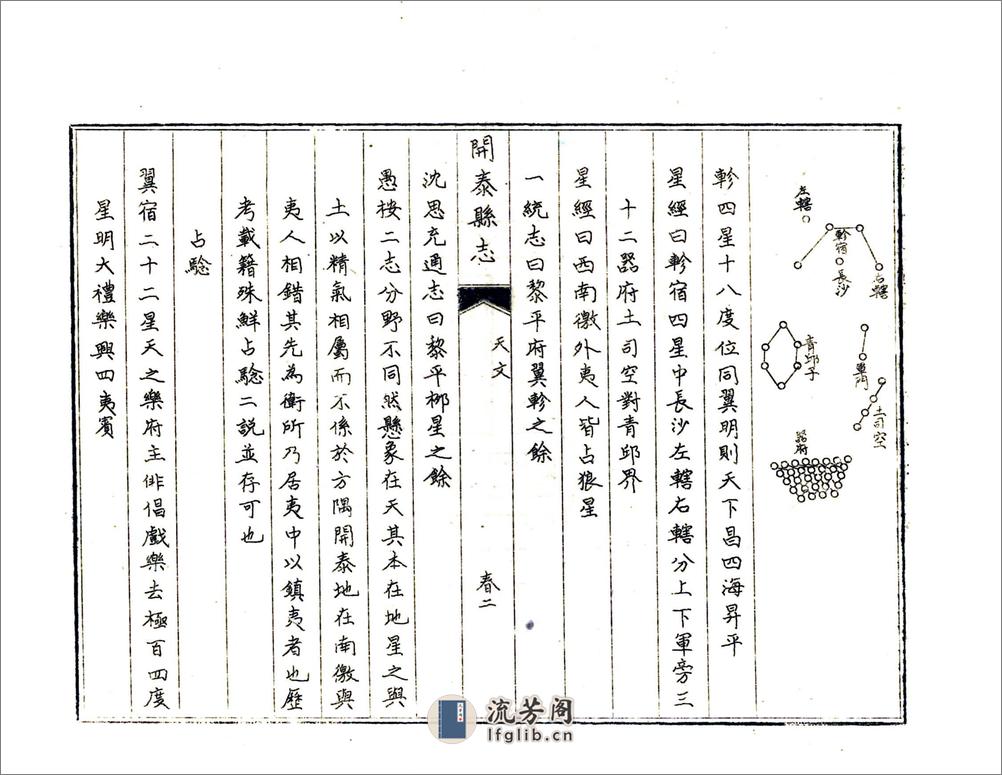 左轄
軫宿
長沙
右轄
青邱子
軍門
土司空
器府
軫四星十八度位同翼明則天下昌四海昇平
星經曰軫宿四星中長沙左轄右轄分上下軍旁三
十二器府土司空對青邱界
星經曰西南徼外夷人皆占狼星
一統志曰黎平府翼軫之餘
開泰縣志
天文
春二
沈思充通志曰黎平栁星之餘
愚桉二志分野不同然懸象在天其本在地星之與
土以精氣相屬而不係於方隅開泰地在南徼與
夷人相錯其先為衛所乃居夷中以鎮夷者也歷
考載籍殊鮮占驗二説並存可也
占驗
翼宿二十二星天之樂府主俳倡戲樂去極百四度
星明大禮樂興四夷賓
流芳阁
lfglib.cn